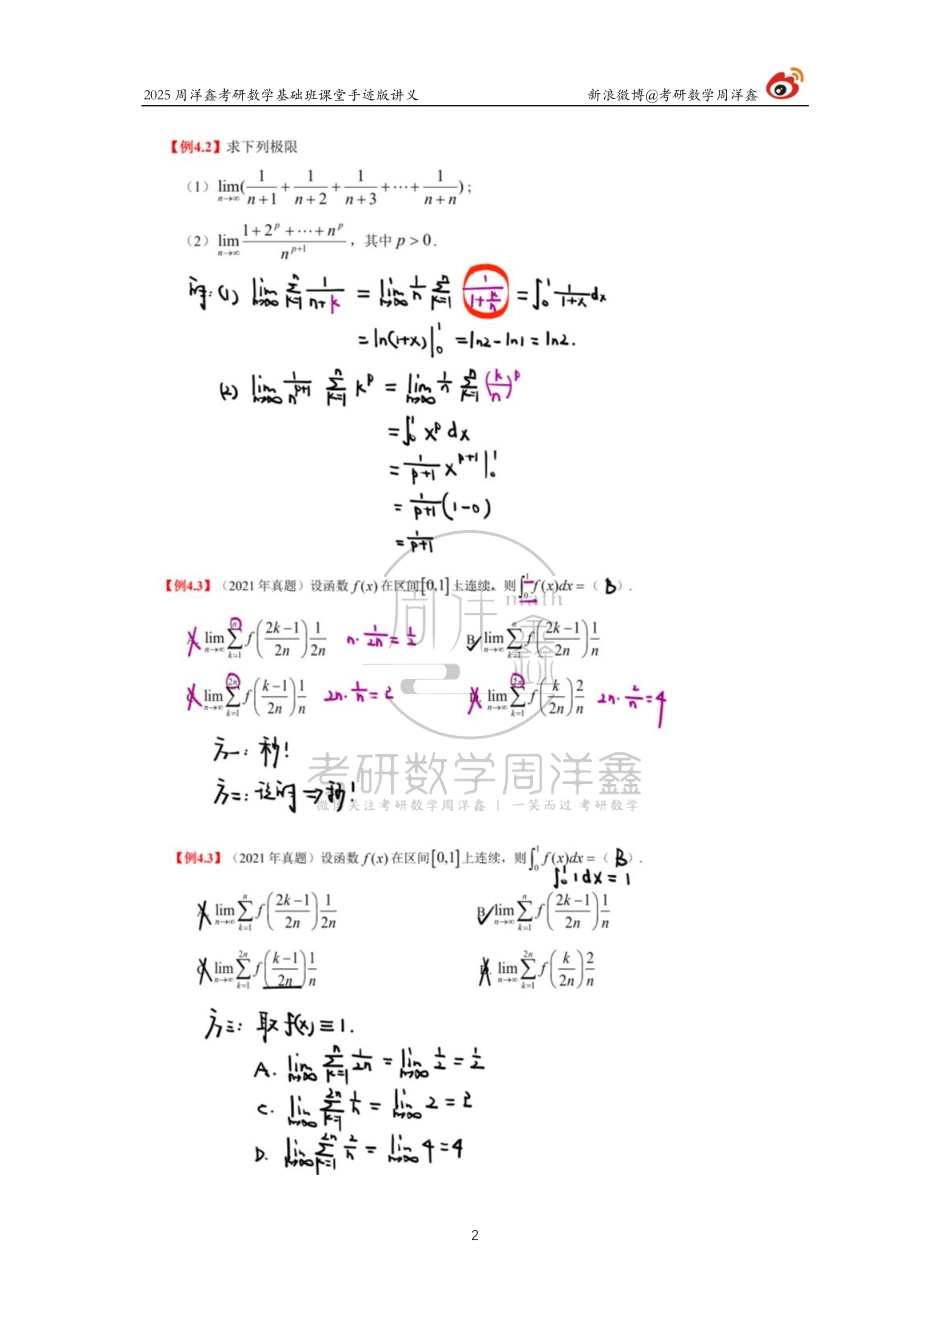 2025 周洋鑫考研数学基础班课堂手迹版讲义 新浪微博@考研数学周洋鑫
【例4.2】求下列极限
(1) lim_{n→∞}(1/(n+1) + 1/(n+2) + 1/(n+3) + ⋯ + 1/(n+n));
(2) lim_{n→∞} (1+2^p+⋯+n^p)/n^{p+1}，其中 p > 0.
解: (1) lim_{n→∞} Σ_{k=1}^{n} 1/(n+k) = lim_{n→∞} 1/n Σ_{k=1}^{n} 1/(1+k/n) = ∫_0^1 1/(1+x) dx
= ln(1+x)|_0^1 = ln2-ln1 = ln2.
(2) lim_{n→∞} 1/n^{p+1} Σ_{k=1}^{n} k^p = lim_{n→∞} 1/n Σ_{k=1}^{n} (k/n)^p
= ∫_0^1 x^p dx
= 1/(p+1) x^{p+1}|_0^1
= 1/(p+1) (1-0)
= 1/(p+1)
【例4.3】（2021 年真题）设函数 f(x) 在区间[0,1]上连续，则 ∫_0^1 f(x)dx =（ B ）.
lim_{n→∞} Σ_{k=1}^{n} f((2k-1)/2n) 1/2n n·1/2n = 1/2 B lim_{n→∞} Σ_{k=1}^{n} f((2k-1)/2n) 1/n
lim_{n→∞} Σ_{k=1}^{2n} f((k-1)/2n) 1/n 2n·1/n = 2 lim_{n→∞} Σ_{k=1}^{2n} f(k/2n) 2/n 2n·2/n = 4
方一: 秒!
方二: 设的 ⇒ 秒!
周洋鑫
math
考研数学周洋鑫
微博关注考研数学周洋鑫 | 一笑而过 考研数学
【例4.3】（2021 年真题）设函数 f(x) 在区间[0,1]上连续，则 ∫_0^1 f(x)dx =（ B ）.
∫_0^1 1dx = 1
lim_{n→∞} Σ_{k=1}^{n} f((2k-1)/2n) 1/2n B lim_{n→∞} Σ_{k=1}^{n} f((2k-1)/2n) 1/n
lim_{n→∞} Σ_{k=1}^{2n} f((k-1)/2n) 1/n lim_{n→∞} Σ_{k=1}^{2n} f(k/2n) 2/n
方三: 取 f(x) ≡ 1.
A. lim_{n→∞} Σ_{k=1}^{n} 1/2n = lim_{n→∞} 1/2 = 1/2
C. lim_{n→∞} Σ_{k=1}^{2n} 1/n = lim_{n→∞} 2 = 2
D. lim_{n→∞} Σ_{k=1}^{2n} 2/n = lim_{n→∞} 4 = 4
2